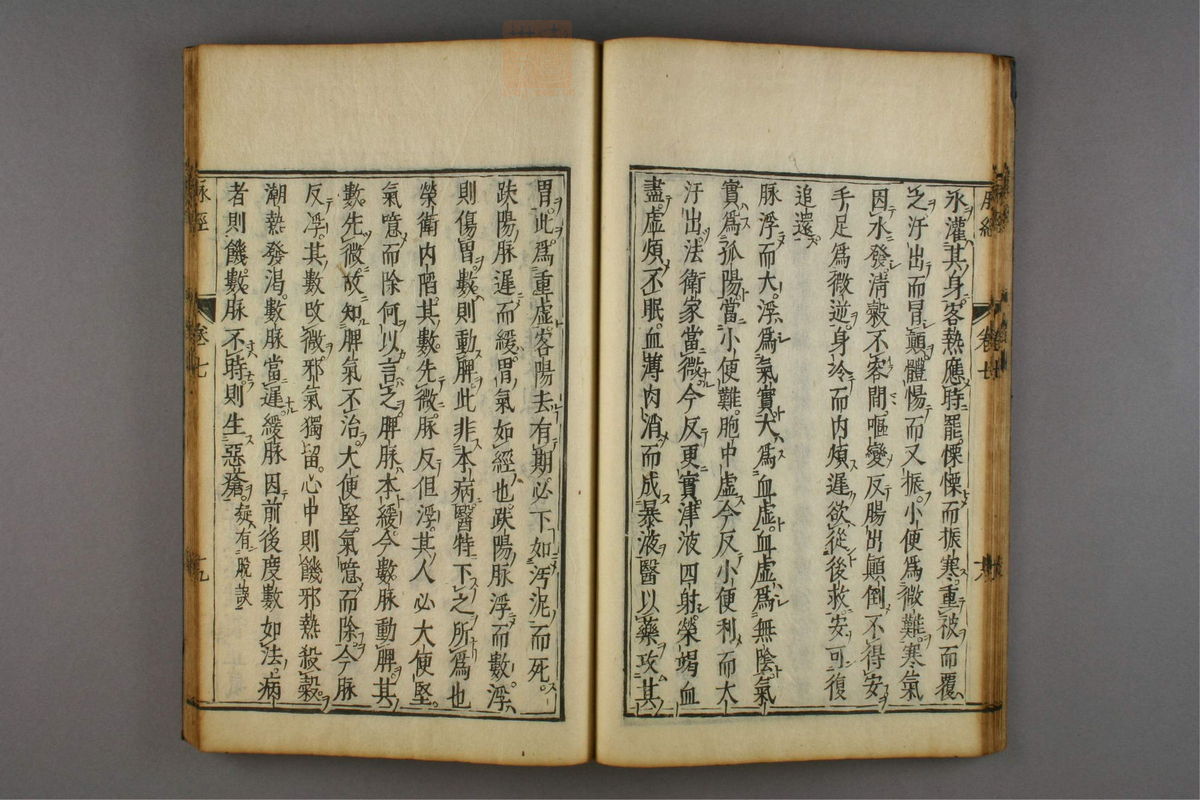 水灌其身客熱應時罷慄慄而振寒重被而覆
之汗出而冒巔體惕而又振小便爲微難寒氣
因水發淸穀不容間嘔變反腸出顚倒不得安
手足爲微逆身冷而內煩遲欲從後救安可復
追還
脉浮而大浮爲氣實大爲血虛血虛爲無陰氣
實爲孤陽當小便難胞中虛今反小便利而大
汗出法衛家當微今反更實津液四射榮竭血
盡虛煩不眠血薄肉消而成暴液醫以藥攻其
脉經 卷七 十八
胃此爲重虛客陽去有期必下如汚泥而死
趺陽脉遲而緩胃氣如經也趺陽脉浮而數浮
則傷胃數則動脾此非本病醫特下之所爲也
榮衛內陷其數先微脉反但浮其人必大便堅
氣噫而除何以言之脾脉本緩今數脉動脾其
數先微故知脾氣不治大便堅氣噫而除今脉
反浮其數改微邪氣獨留心中則饑邪熱殺穀
潮熱發渴數脉當遲緩脉因前後度數如法病
者則饑數脉不時則生惡瘡疑有脫誤
脉經 卷七 十九